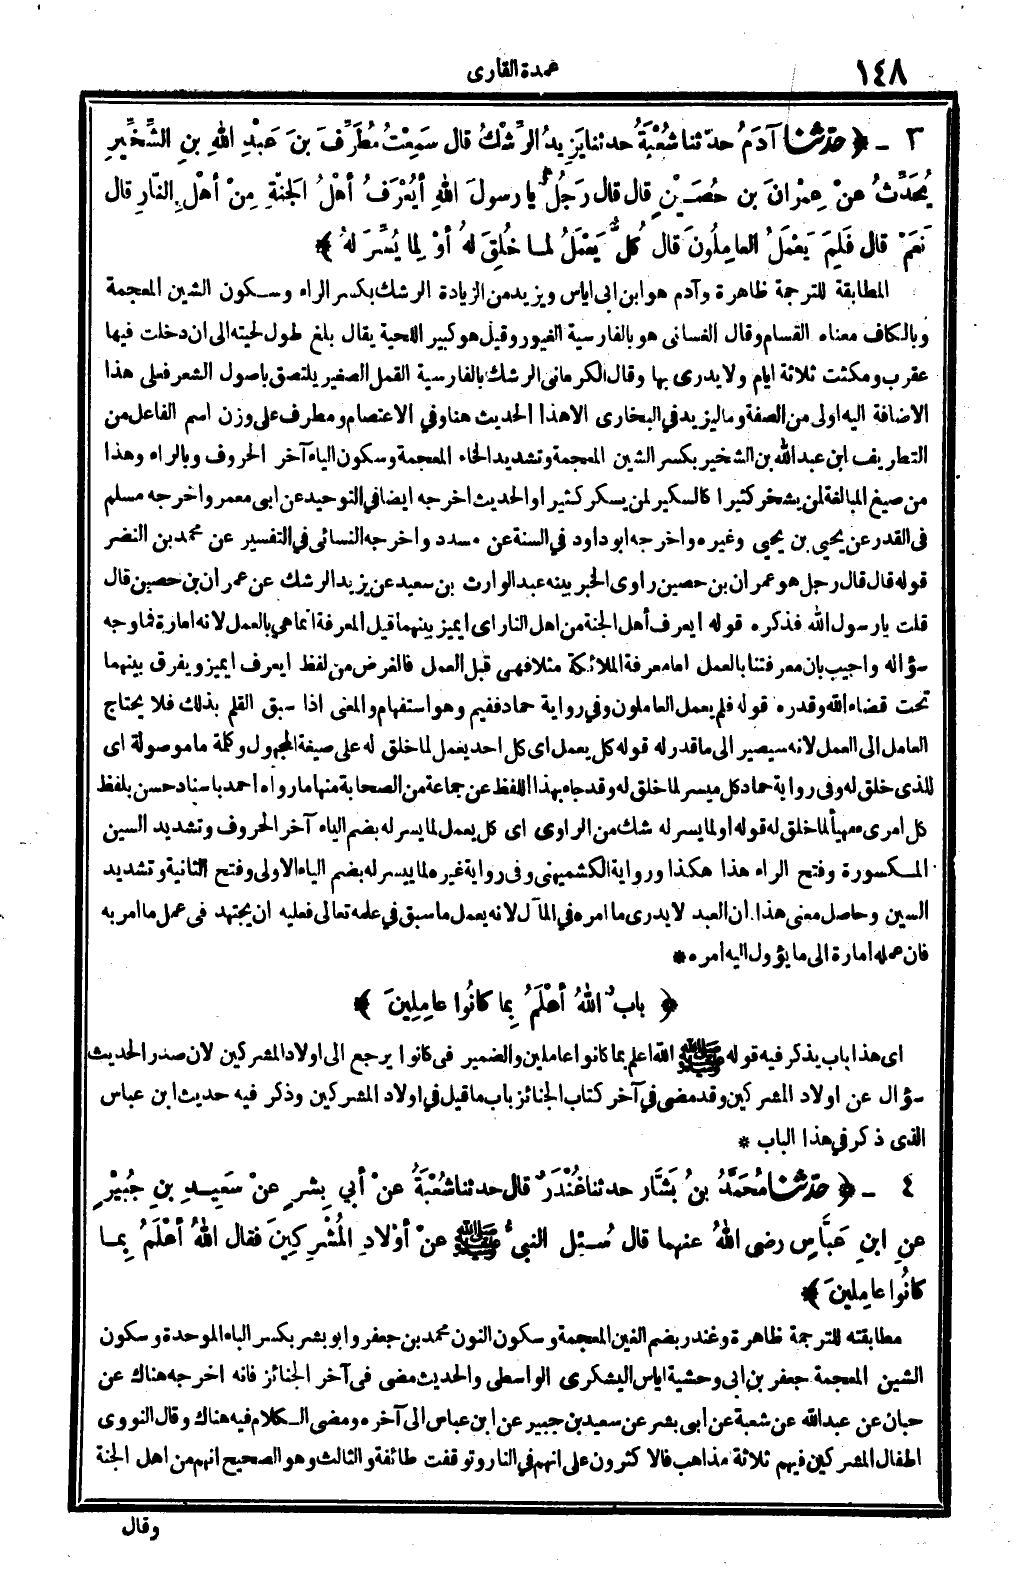 ١٤٨
عمدة القارى
٣ - ﴿ حدّثنا آدَمُ حدّثنا شُعْبَةُ حدثنا يَزِيدُ الرِّشْكُ قال سَمِعْتُ مُطَرِّفَ بنَ عَبْدِ اللهِ بنِ الشِّخِّيرِ
يُحَدِّثُ عنْ عِمْرَانَ بن حُصَيْنٍ قال قال رَجُلٌ يا رسولَ اللهِ أيُعْرَفُ أهْلُ الجَنَّةِ مِنْ أهْلِ النَّارِ قال
نَعَمْ قال فَلِمَ يَعْمَلُ العامِلُونَ قال كُلٌّ يَعْمَلُ لما خُلِقَ لهُ أوْ لِما يُسِّرَ لهُ ﴾
المطابقة للترجمة ظاهرة وآدم هو ابن ابى اياس ويزيد من الزيادة الرشك بكسر الراء وسكون الشين المعجمة
وبالكاف معناه القسام وقال الغسانى هو بالفارسية الغيور وقيل هو كبير اللحية يقال بلغ طول لحيته الى ان دخلت فيها
عقرب ومكثت ثلاثة ايام ولا يدرى بها وقال الكرمانى الرشك بالفارسية القمل الصغير يلتصق باصول الشعر فعلى هذا
الاضافة اليه اولى من الصفة وما ليزيد في البخارى الا هذا الحديث هنا وفي الاعتصام ومطرف على وزن اسم الفاعل من
التطريف ابن عبد الله بن الشخير بكسر الشين المعجمة وتشديد الخاء المعجمة وسكون الياء آخر الحروف وبالراء وهذا
من صيغ المبالغة لمن يشخر كثيرا كالسكير لمن يسكر كثيرا والحديث اخرجه ايضا في التوحيد عن ابى معمر واخرجه مسلم
فى القدر عن يحيى بن يحيى وغيره واخرجه ابو داود في السنة عن مسدد واخرجه النسائى في التفسير عن محمد بن النضر
قوله قال قال رجل هو عمران بن حصين راوى الخبر بينه عبد الوارث بن سعيد عن يزيد الرشك عن عمران بن حصين قال
قلت يا رسول الله فذكره قوله ايعرف أهل الجنة من اهل النار اى ايميز بينهما قيل المعرفة انما هي بالعمل لانه امارة فما وجه
سؤاله واجيب بان معرفتنا بالعمل اما معرفة الملائكة مثلا فهى قبل العمل فالغرض من لفظ ايعرف ايميز ويفرق بينهما
تحت قضاء الله وقدره قوله فلم يعمل العاملون وفي رواية حماد ففيم وهو استفهام والمعنى اذا سبق القلم بذلك فلا يحتاج
العامل الى العمل لانه سيصير الى ما قدر له قوله كل يعمل اى كل احد يعمل لما خلق له على صيغة المجهول وكلمة ما موصولة اى
للذى خلق له وفى رواية حماد كل ميسر لما خلق له وقد جاء بهذا اللفظ عن جماعة من الصحابة منها ما رواه احمد باسناد حسن بلفظ
كل امرىء مهيأ لما خلق له قوله او لما يسر له شك من الراوى اى كل يعمل لما يسر له بضم الياء آخر الحروف وتشديد السين
المكسورة وفتح الراء هذا هكذا ورواية الكشميهنى وفى رواية غيره لما ييسر له بضم الياء الاولى وفتح الثانية وتشديد
السين وحاصل معنى هذا ان العبد لا يدرى ما امره في المآل لانه يعمل ما سبق في علمه تعالى فعليه ان يجتهد فى عمل ما امر به
فان عمله امارة الى ما يؤول اليه امره *
﴿ بابٌ اللهُ أعْلَمُ بِما كانُوا عامِلِينَ ﴾
اى هذا باب يذكر فيه قوله ﷺ الله اعلم بما كانوا عاملين والضمير فى كانوا يرجع الى اولاد المشركين لان صدر الحديث
سؤال عن اولاد المشركين وقد مضى في آخر كتاب الجنائز باب ما قيل في اولاد المشركين وذكر فيه حديث ابن عباس
الذى ذكر في هذا الباب *
٤ - ﴿ حدّثنا مُحَمَّدُ بنُ بَشَّار حدثنا غُنْدَرٌ قال حدثنا شُعْبَةُ عنْ أبي بِشرٍ عنْ سَعِيدِ بنِ جُبَيْرٍ
عنِ ابنِ عَبَّاسٍ رضى اللهُ عنهما قال سُئِلَ النبىُّ ﷺ عنْ أوْلادِ المُشْرِكِينَ فقال اللهُ أعْلَمُ بِما
كانُوا عامِلِينَ ﴾
مطابقته للترجمة ظاهرة وغندر بضم الغين المعجمة وسكون النون محمد بن جعفر وابو بشر بكسر الباء الموحدة وسكون
الشين المعجمة جعفر بن ابى وحشية اياس اليشكرى الواسطى والحديث مضى فى آخر الجنائز فانه اخرجه هناك عن
حبان عن عبد الله عن شعبة عن ابى بشر عن سعيد بن جبير عن ابن عباس الى آخره ومضى الكلام فيه هناك وقال النووى
اطفال المشركين فيهم ثلاثة مذاهب فالاكثرون على انهم في النار وتوقفت طائفة والثالث وهو الصحيح انهم من اهل الجنة
وقال